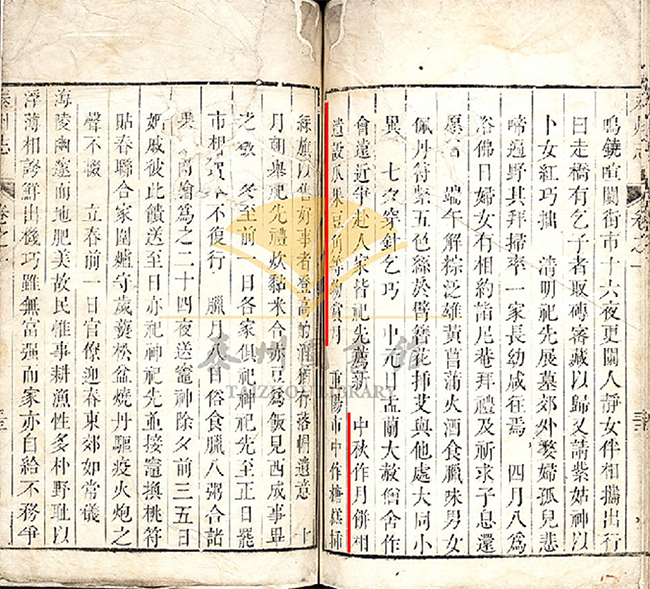 鳴鐃喧闐街市十六夜更闌人靜女伴相攜出行
曰走橋有乞子者取磚密藏以歸又請紫姑神以
卜女紅巧拙 清明祀先展墓郊外嫠婦孤兒悲
啼遍野其拜掃率一家長幼咸往焉 四月八為
浴佛日婦女有相約詣尼菴拜禮及祈求子息還
愿者 端午解粽泛雄黃菖蒲火酒食臘味男女
佩丹符繫五色絲於臂簪花插艾與他處大同小
異 七夕穿針乞巧 中元日盂蘭大赦僧舍作
會遠近爭赴人家皆祀先薦新 中秋作月餅相
遺設瓜果豆角等物賞月 重陽市中作糖糕插
綵旗以售好事者登高飲酒猶有落帽遺意 十
月朝舉祀先禮炊黏米合赤豆爲飯見西成事畢
之敬 冬至前一日各家俱祀神祀先至正日罷
市相賀 不復行 臘月八日俗食臘八粥合諸
果 爲之二十四夜送竈神除夕前三五日
姻戚彼此饋送至日亦祀神祀先並接竈換桃符
貼春聯合家圍爐守歲爇松盆燒丹驅疫火炮之
聲不輟 立春前一日官僚迎春東郊如常儀
海陵幽邃而地肥美故民惟事耕漁性多朴野耻以
浮薄相誇鮮出機巧雖無富强而家亦自給不務爭
泰州志 卷之一
泰州 館
TAIZHOU LIBRARY